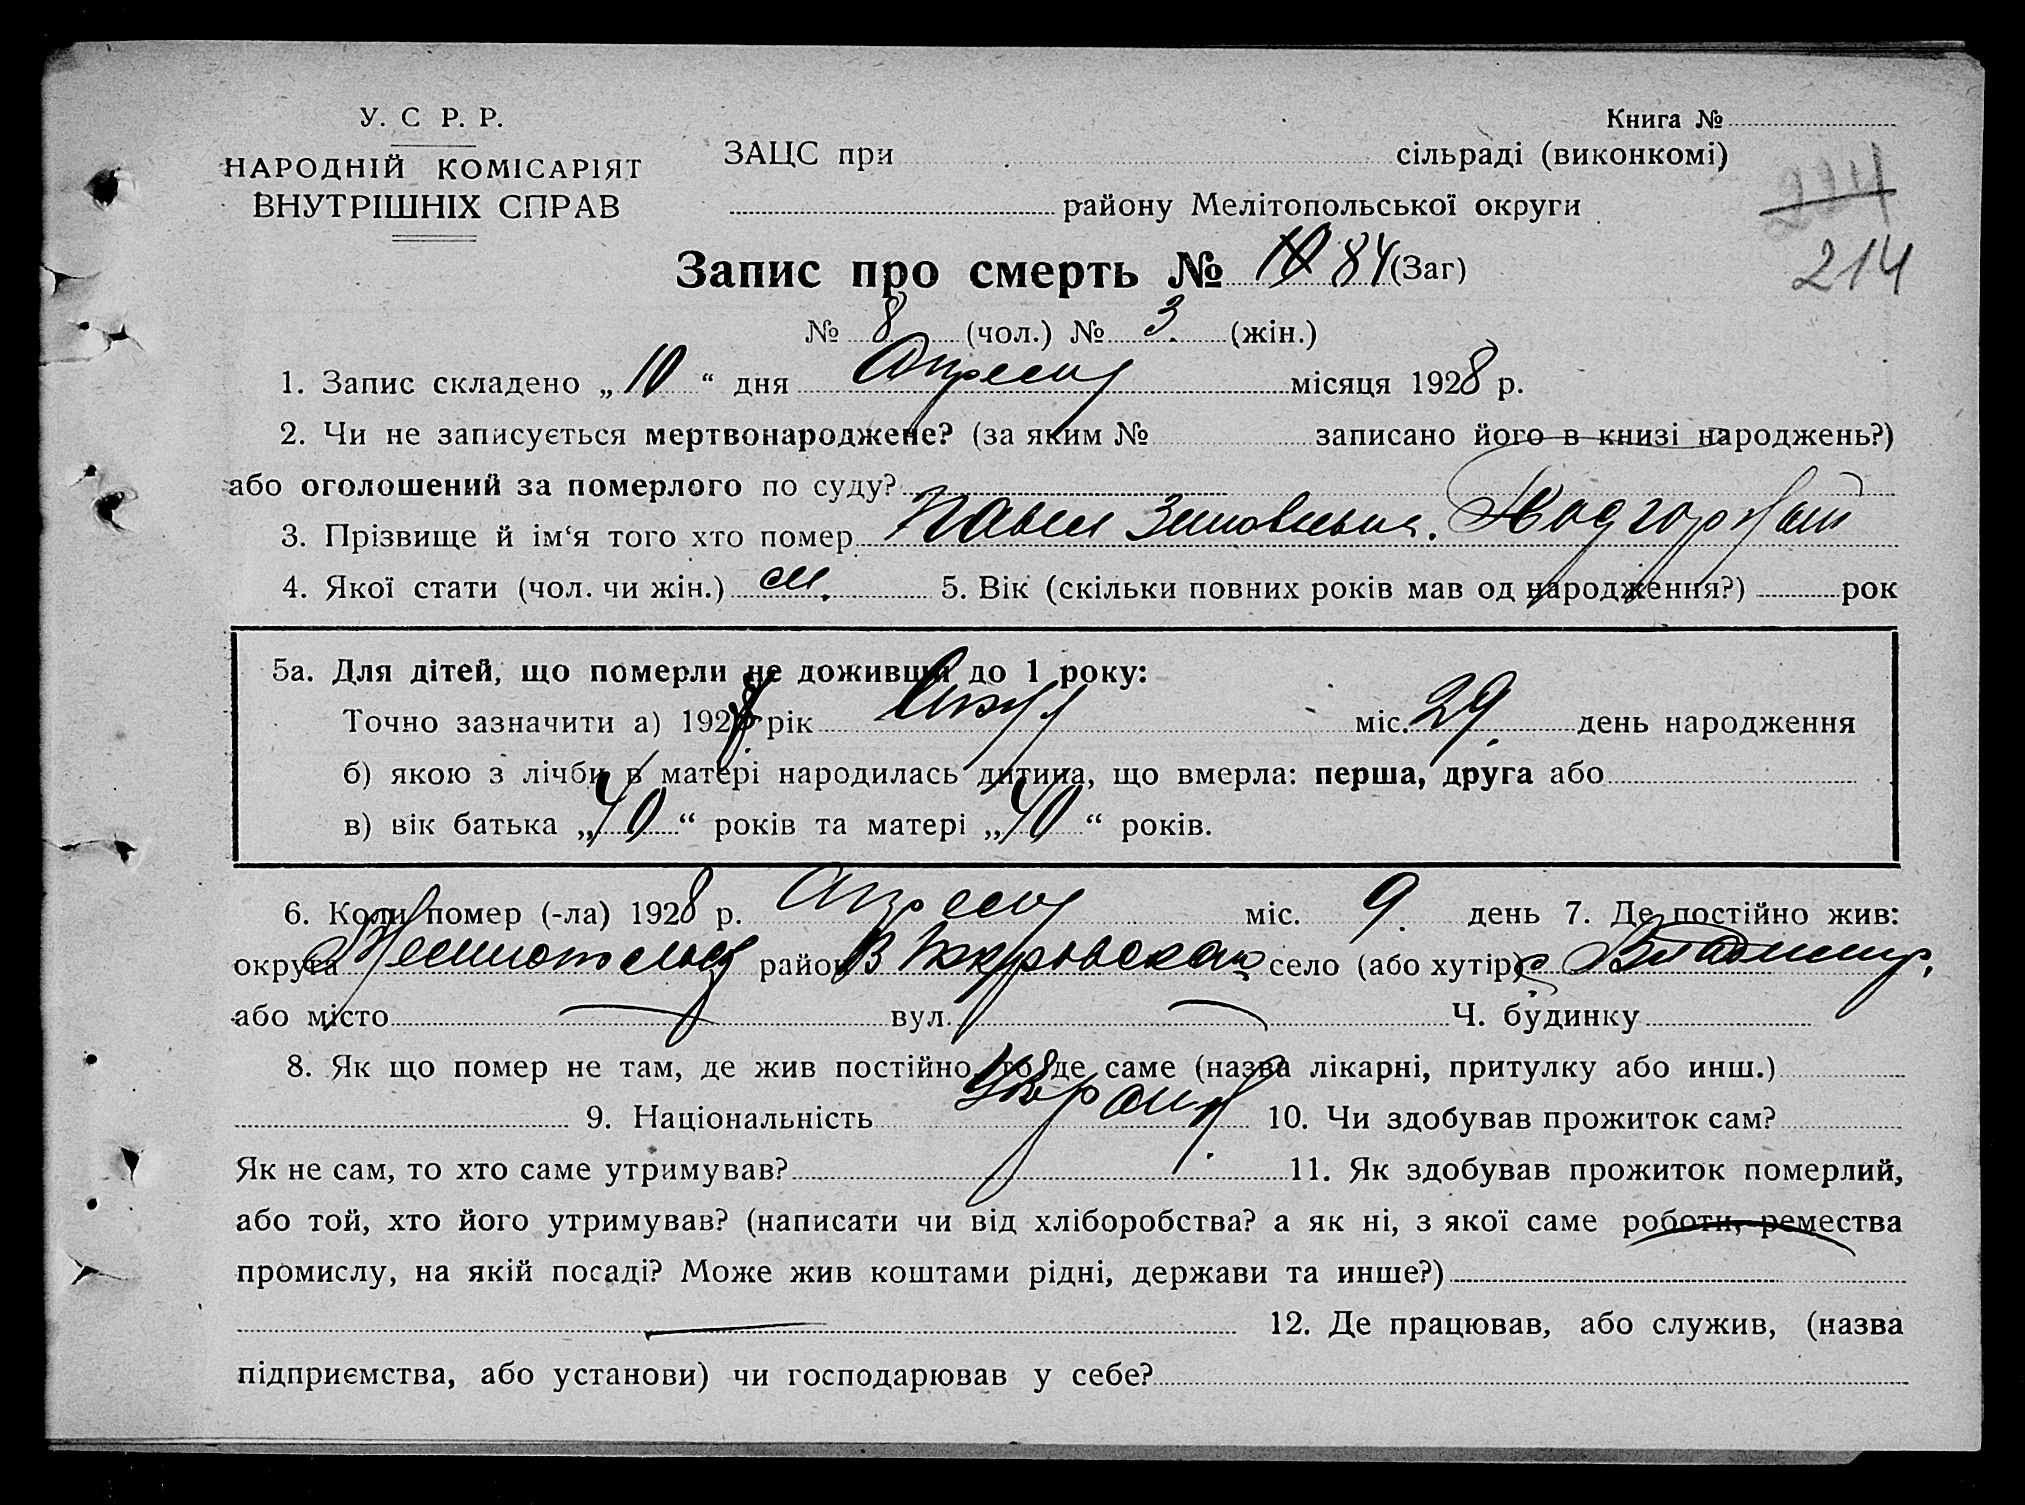 У. С Р. Р.
НАРОДНІЙ КОМІСАРІЯТ
ВНУТРІШНІХ СПРАВ
Книга №
ЗАЦС при сільраді (виконкомі)
району Мелітопольської округи
224
214
Запис про смерть № 10 84 (Заг)
№ 8 (чол.) № 3 (жін.)
1. Запис складено „ 10 “ дня Апреля місяця 1928 р.
2. Чи не записується мертвонароджене? (за яким № записано його в книзі народжень?)
або оголошений за померлого по суду?
3. Прізвище й ім‘я того хто помер Павел Подгорный
4. Якої стати (чол. чи жін.) м. 5. Вік (скільки повних років мав од народження?) рок
5а. Для дітей, що померли не доживши до 1 року:
Точно зазначити а) 192 рік міс. 29 день народження
б) якою з лічби в матері народилась дитина, що вмерла: перша, друга або
в) вік батька „ 40 “ років та матері „ 40 “ років.
6. Коли помер (-ла) 1928 р. Апреля міс. 9 день 7. Де постійно жив:
округа район село (або хутір) Владимир.
або місто вул. Ч. будинку
8. Як що помер не там, де жив постійно, то де саме (назва лікарні, притулку або инш.)
9. Національність 10. Чи здобував прожиток сам?
Як не сам, то хто саме утримував? 11. Як здобував прожиток померлий,
або той, хто його утримував? (написати чи від хліборобства? а як ні, з якої саме роботи, ремества
промислу, на якій посаді? Може жив коштами рідні, держави та инше?)
12. Де працював, або служив, (назва
підприємства, або установи) чи господарював у себе?